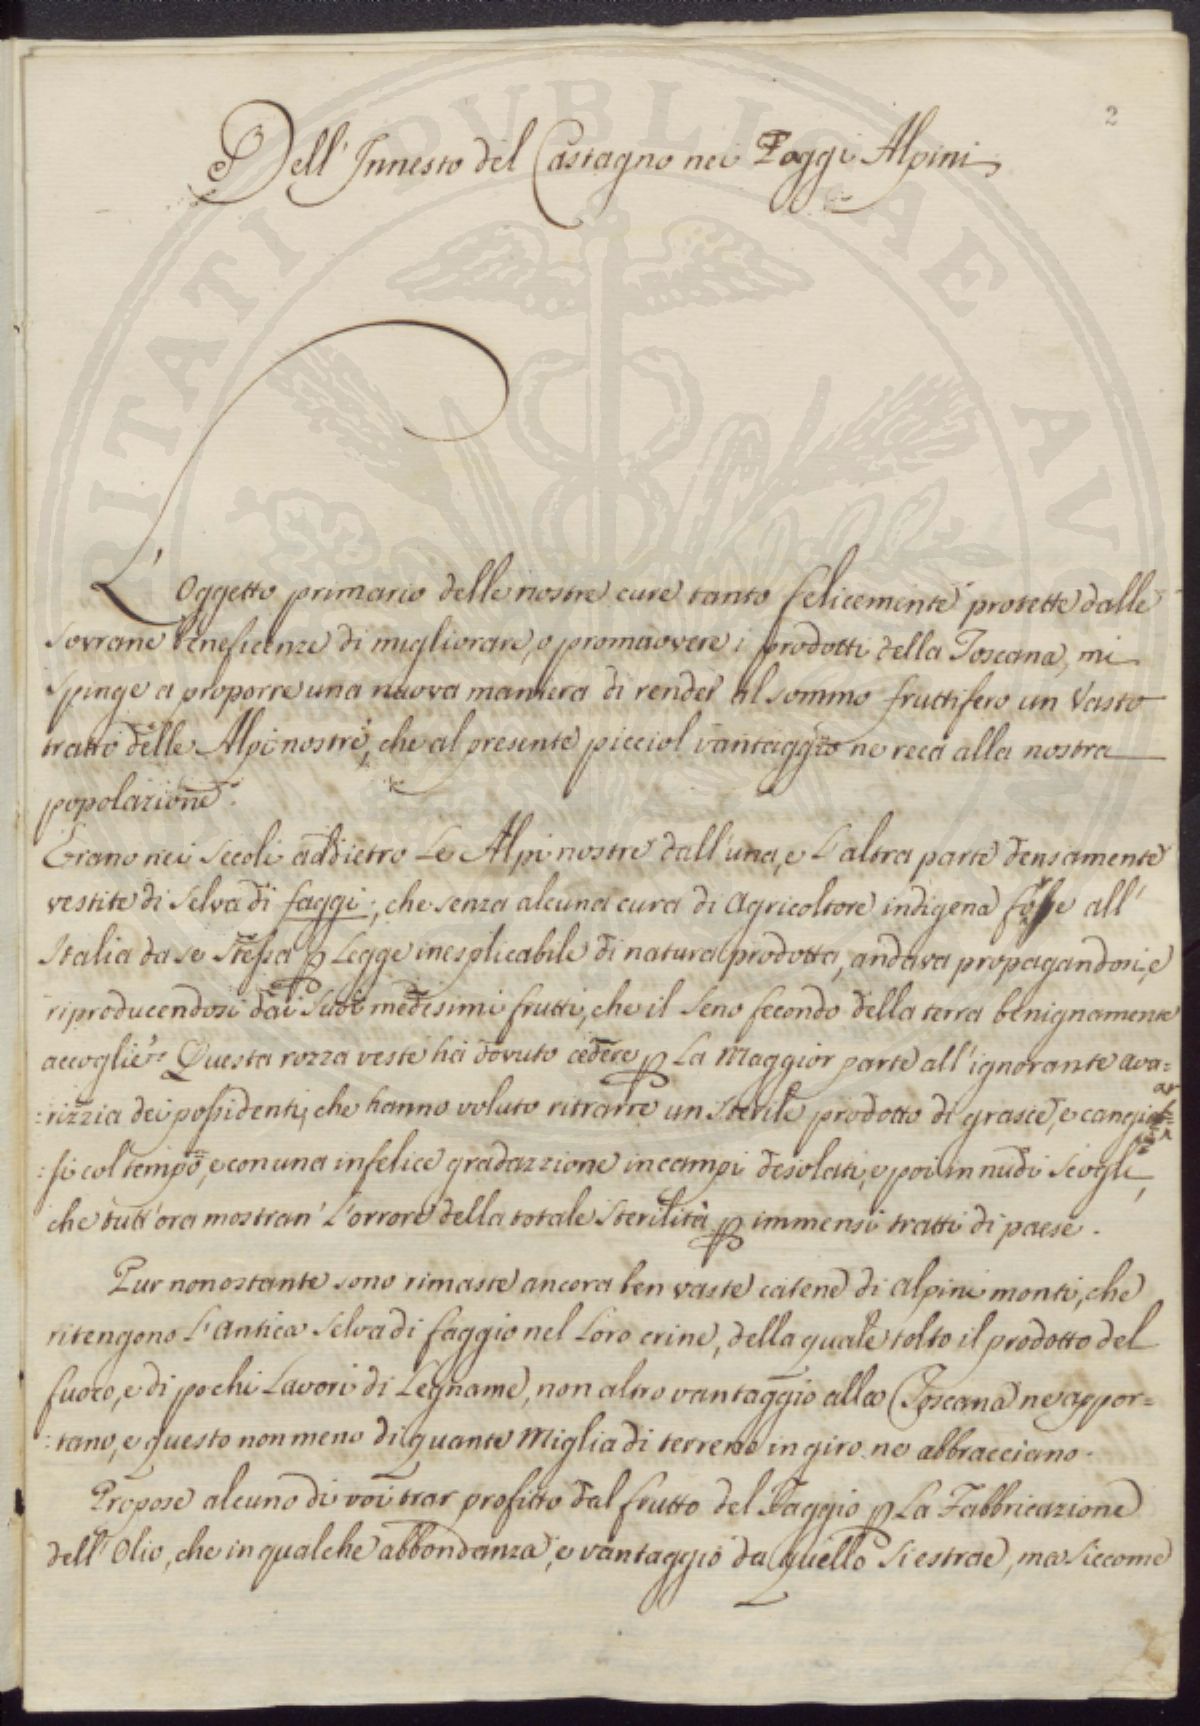 2
Dell' Innesto del Castagno nei Poggi Alpini
L' Oggetto primario delle nostre cure tanto felicemente protette dalle
sovrane beneficenze di migliorare, o promuovere i prodotti della Toscana, mi
spinge a proporre una nuova maniera di render al sommo fruttifero un vasto
tratto delle Alpi nostre, che al presente picciol vantaggio ne reca alla nostra
popolazione.
Erano nei secoli addietro Le Alpi nostre dall'una, e L'altra parte densamente
vestite di selva di faggi; che senza alcuna cura di Agricoltore indigena fosse all'
Italia da se stessa p Legge inesplicabile di natura prodotta, andava propagandosi, e
riproducendosi dai suoi medesimi frutti, che il seno fecondo della terra benignamente
accoglie. Questa rozza veste ha dovuto cedere p La Maggior parte all'ignorante ava=
=rizzia dei possidenti, che hanno voluto ritrarre un sterile prodotto di grasce, e cangiar
=si col tempo, e con una infelice gradazzione in campi desolati, e poi in nudi scogli,
che tutt'ora mostran' L'orrore della totale sterilità p immensi tratti di paese.
Pur nonostante sono rimaste ancora ben vaste catene di alpini monti, che
ritengono L'Antica selva di faggio nel Loro crine, della quale tolto il prodotto del
fuoco, e di pochi Lavori di Legname, non altro vantaggio alla Toscana ne appor=
=tano, e questo non meno di quante Miglia di terreno in giro ne abbracciano.
Propose alcuno di voi trar profitto dal frutto del Faggio p La Fabbricazione
dell' Olio, che in qualche abbondanza, e vantaggio da quello si estrae, ma siccome
PVBLICAE